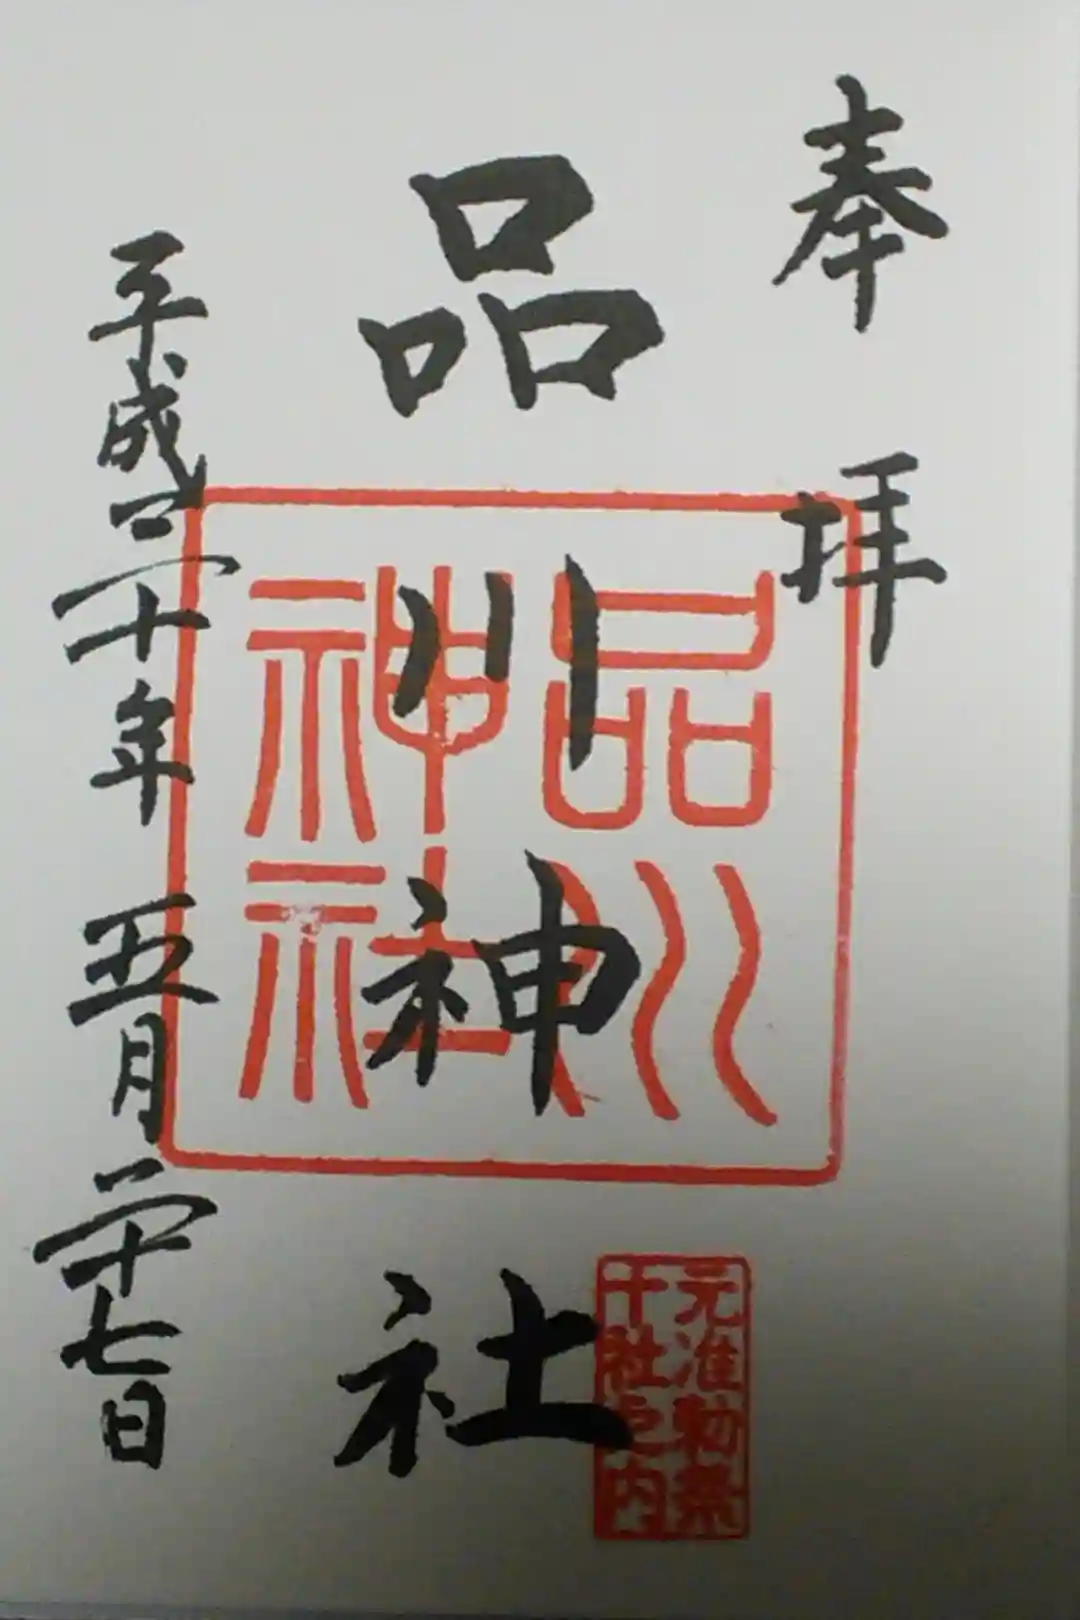 奉拝
品川神社
平成二十年五月二十七日
品川
神社
元准勅祭
十社之内